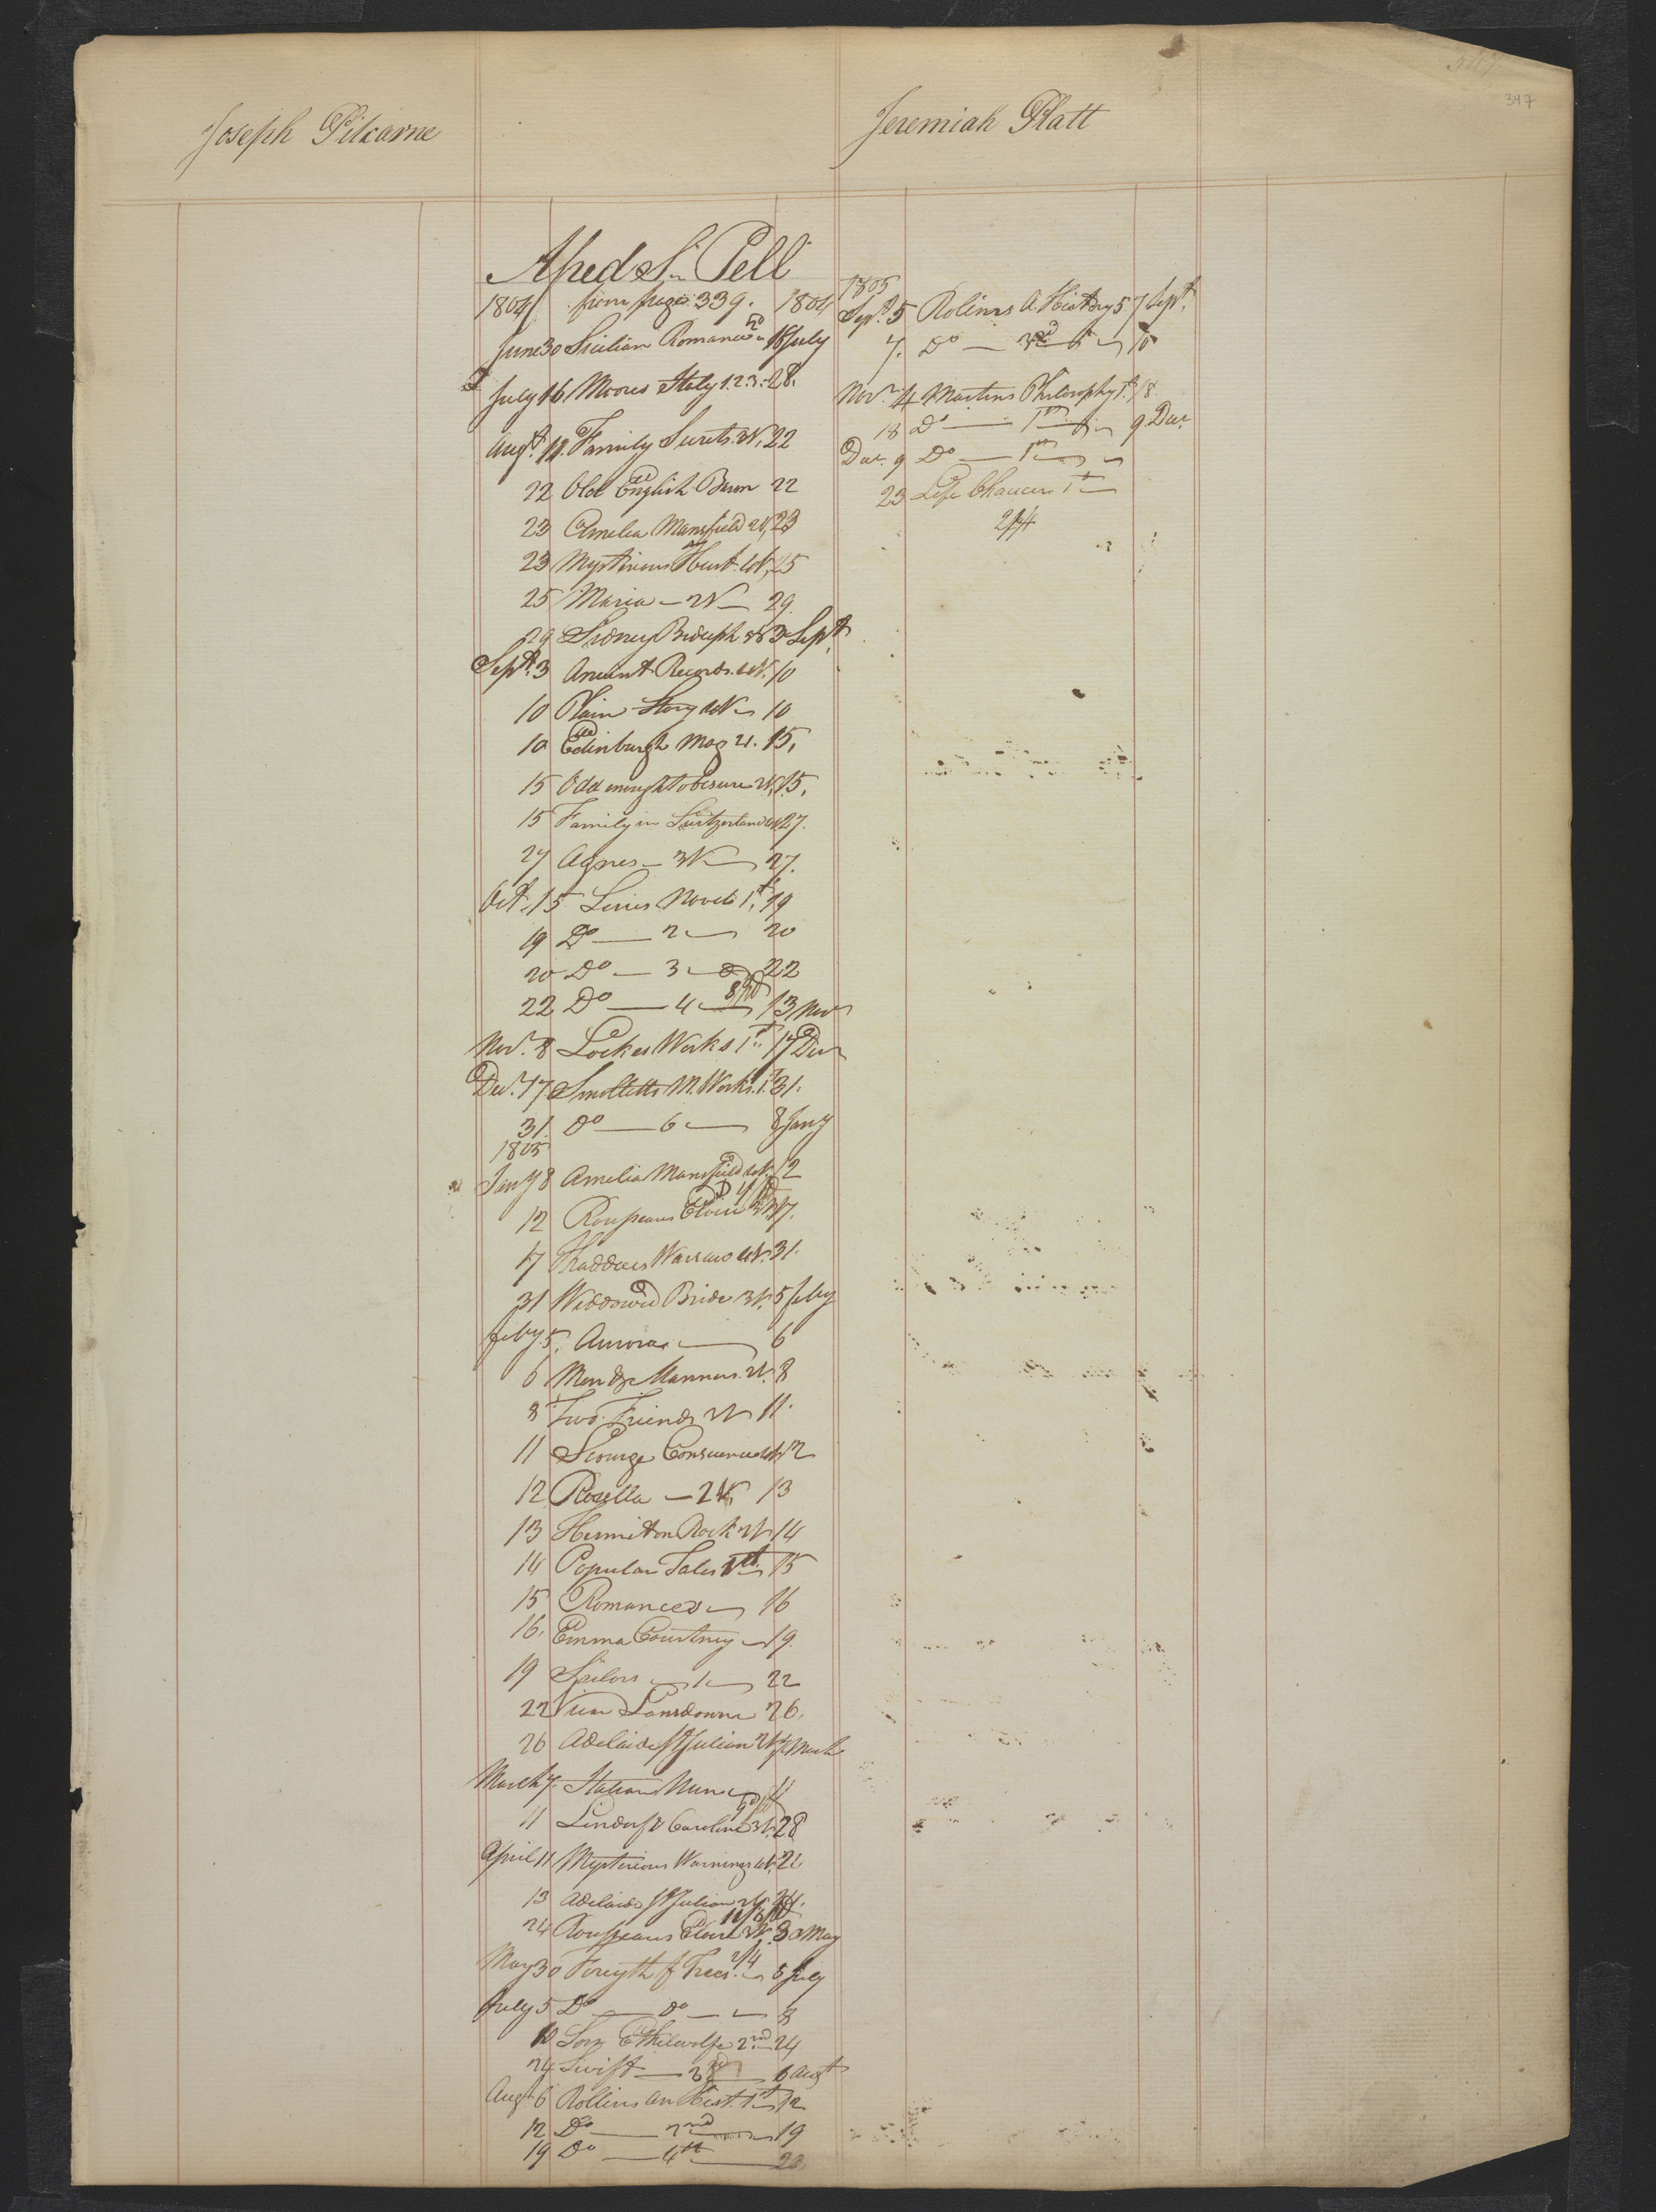 347
347
Joseph Pitcarne
Jeremiah Platt
Alfred S. Pell
1804 from page 339. 1804
June 30 Sicilian Romance 16 July
July 16 Moores Italy 1.2.3. 28.
Augt. 11. Family Secrets. 22
22 Old English Baron 22
23 Amelia Mansfield 23
23 Mysterious 25
25 Maria — 2V — 29.
29 Sidney Bidulph 3 Sept.
Sept. 3 Ancient Records. 4V. 10
10 Plain Story 10
10 Edinburgh Mag 21. 15.
15 Odd enough to be sure 2V. 15.
15 Family in Switzerland 27.
27 Agnes — 3V — 27.
Oct. 15 Series Novels 1st. 19
19 Do — 2 — 20
20 Do — 3 — 22
22 Do — 4 — 13 Nov
Nov. 8 Lockes Works 1st. 17 Decr
Decr. 17 Smolletts M. Works. 1. 31.
31. Do — 6 — 8 Jany
1805
Jany 8 Amelia Mansfield 12
12 Rousseaus Eloisa 3V. 17.
17 Thaddeus Warsaw 4V. 31.
31 Widdowed Bride 3V. 5 Feby
Feby 5. Aurora — 6
6 Men & Manners. 8
8 Two Friends 2V 11.
11 Scourge Conscience 12
12 Rosella — 2V. 13
13 Hermit on Rock 2V 14
14 Popular Tales 1st. 15
15 Romances — 16
16. Emma Courtney — 19.
19 Sailors — 1 — 22
22 Lansdowne 26.
26 Adelaide St Julian 2V 7 March
March 7. Italian Nun — 11
11 Lindorf & Caroline 3V. 28
April 11 Mysterious Warnings
13 Adelaide St Julian 2V. 24.
24 Rousseaus Eloisa 3V. 30 May
May 30 Forsyth f Trees. 2/4 5 July
July 5 Do — do — 8
10 Ethelwolfe 2nd 24
24 Swift — 6 Augt
Augt 6 Rollins An Hist. 1st 12
12 Do — 2nd — 19
19 Do — 4th — 26.
1805
Sept. 5 Rolins A History 5. 7 Sept.
7. Do — 6 — 10
Novr. 4 Martins Philosophy 1st. 18.
18 Do — 9 Decr.
Decr. 9 Do
23 Life Chaucer 1st —
2/4